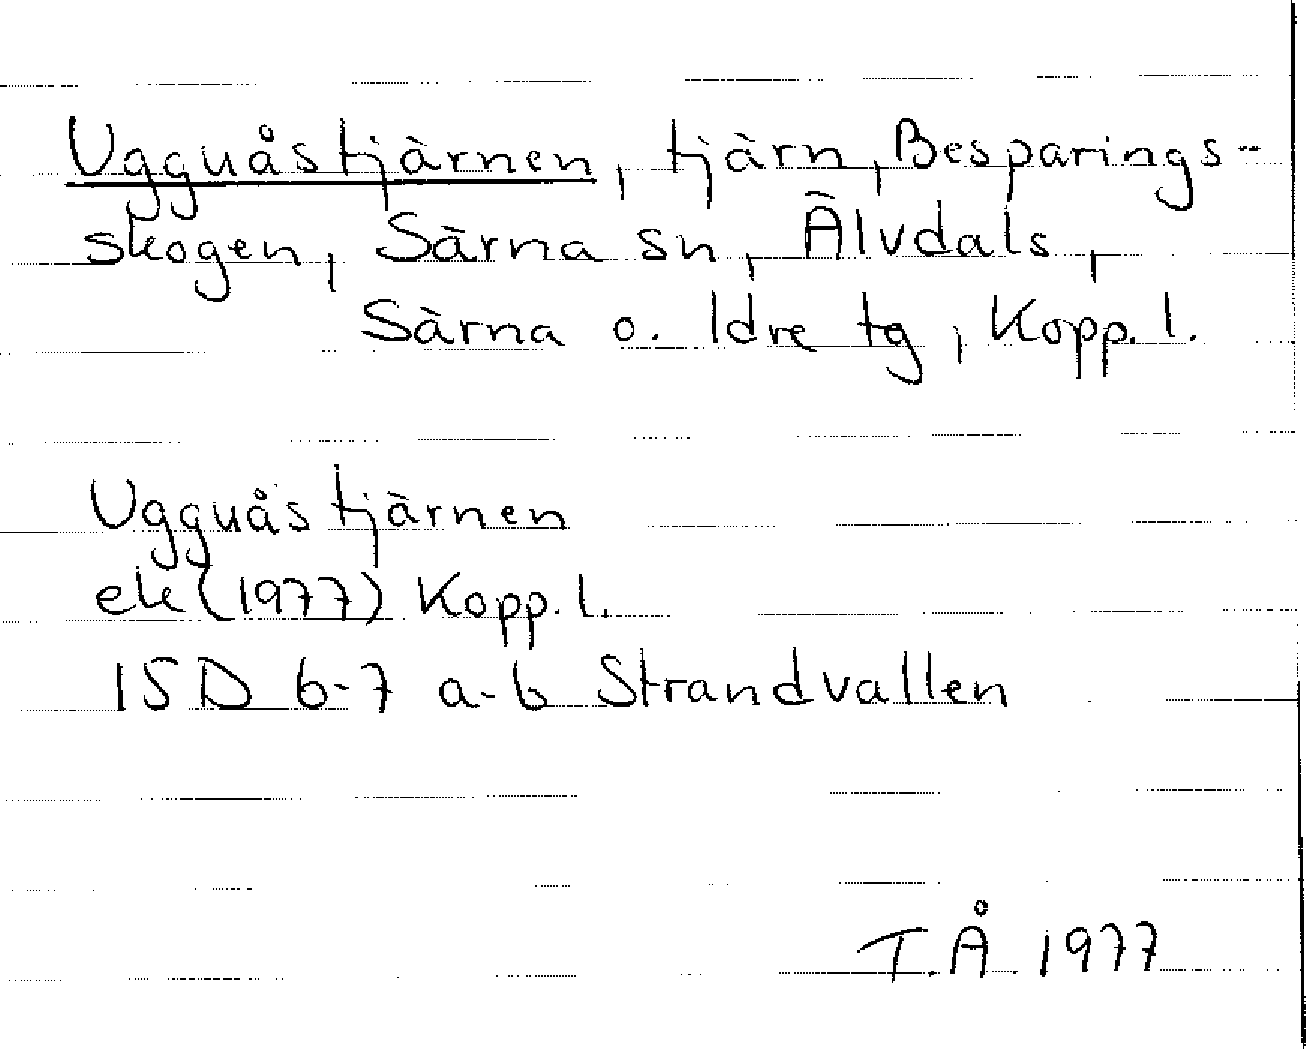 Ugguåstjärnen, tjärn, Besparings-
skogen, Särna sn, Älvdals,
Särna o. Idre tg, Kopp. l.
Ugguåstjärnen
ek (1977) Kopp. l.
15D 6-7 a-b Strandvallen
T.Å. 1977